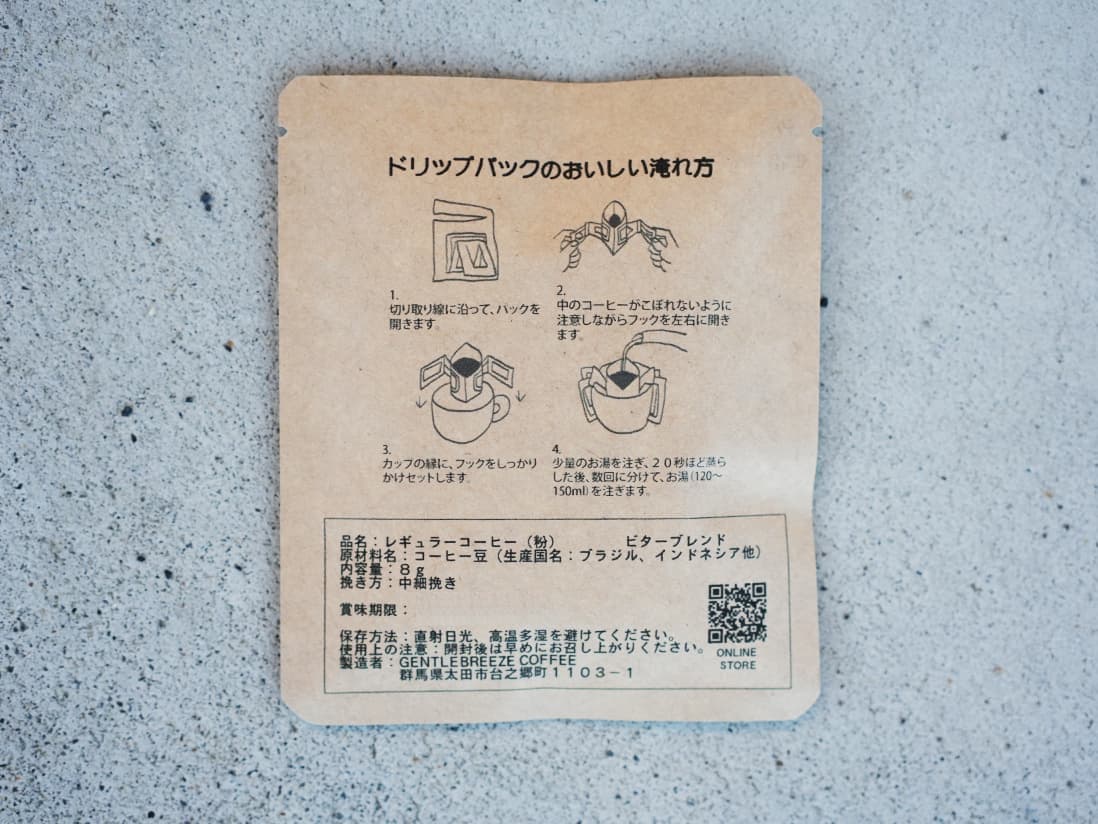 ドリップパックのおいしい淹れ方
1.
切り取り線に沿って、パックを
開きます。
2.
中のコーヒーがこぼれないように
注意しながらフックを左右に開き
ます。
3.
カップの縁に、フックをしっかり
かけセットします。
4.
少量のお湯を注ぎ、２０秒ほど蒸ら
した後、数回に分けて、お湯(120〜
150ml)を注ぎます。
品名：レギュラーコーヒー（粉）　ビターブレンド
原材料名：コーヒー豆（生産国名：ブラジル、インドネシア他）
内容量：８ｇ
挽き方：中細挽き
賞味期限：
保存方法：直射日光、高温多湿を避けてください。
使用上の注意：開封後は早めにお召し上がりください。
製造者：GENTLEBREEZE COFFEE
群馬県太田市台之郷町１１０３−１
ONLINE
STORE